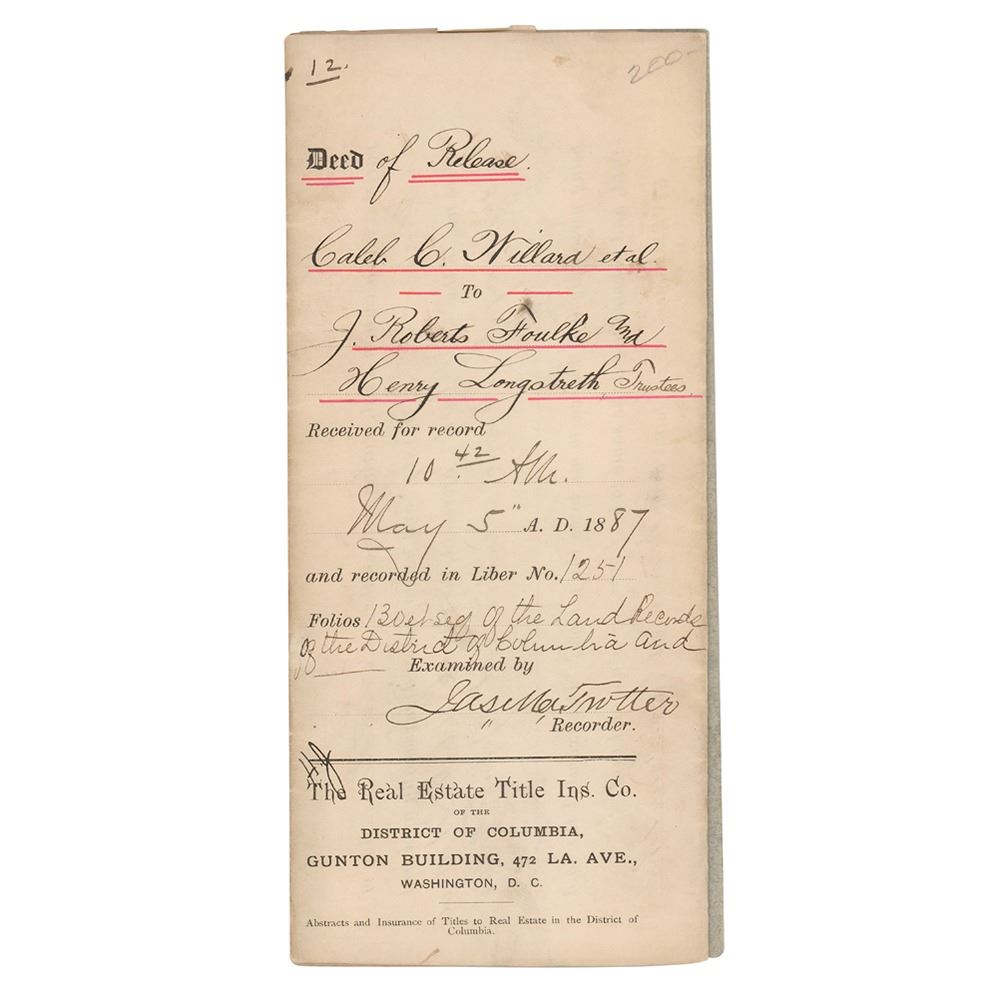 12.
200-
Deed of Release.
Caleb C. Willard et al.
To
J. Roberts Foulke and
Henry Longstreth, Trustees.
Received for record
10 42 AM.
May 5" A. D. 1887
and recorded in Liber No. 1251
Folios 130 et seq of the Land Records
of the District of Columbia and
Examined by
Jas M Trotter
Recorder.
The Real Estate Title Ins. Co.
OF THE
DISTRICT OF COLUMBIA,
GUNTON BUILDING, 472 LA. AVE.,
WASHINGTON, D. C.
Abstracts and Insurance of Titles to Real Estate in the District of
Columbia.